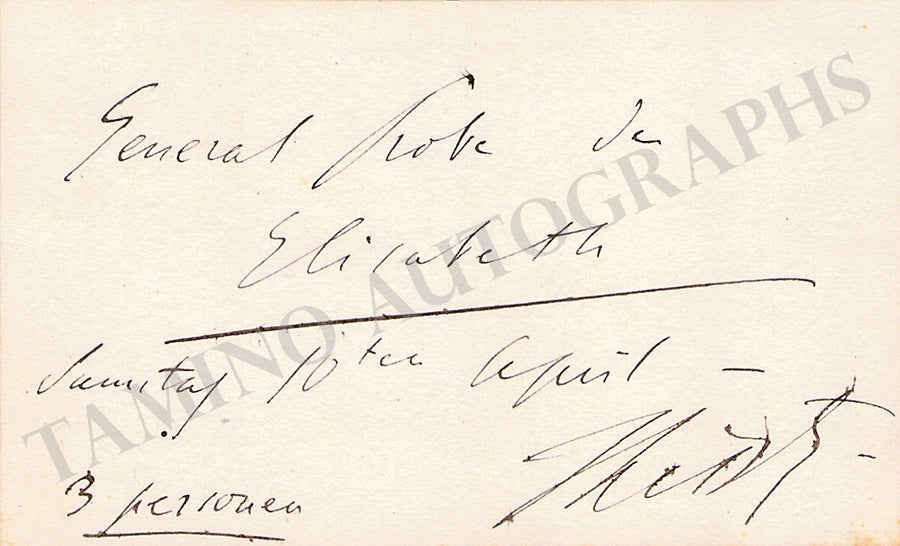 General Probe der
Elisabeth
Samstag 10ten April –
3 personen
FLiszt
TAMINO AUTOGRAPHS